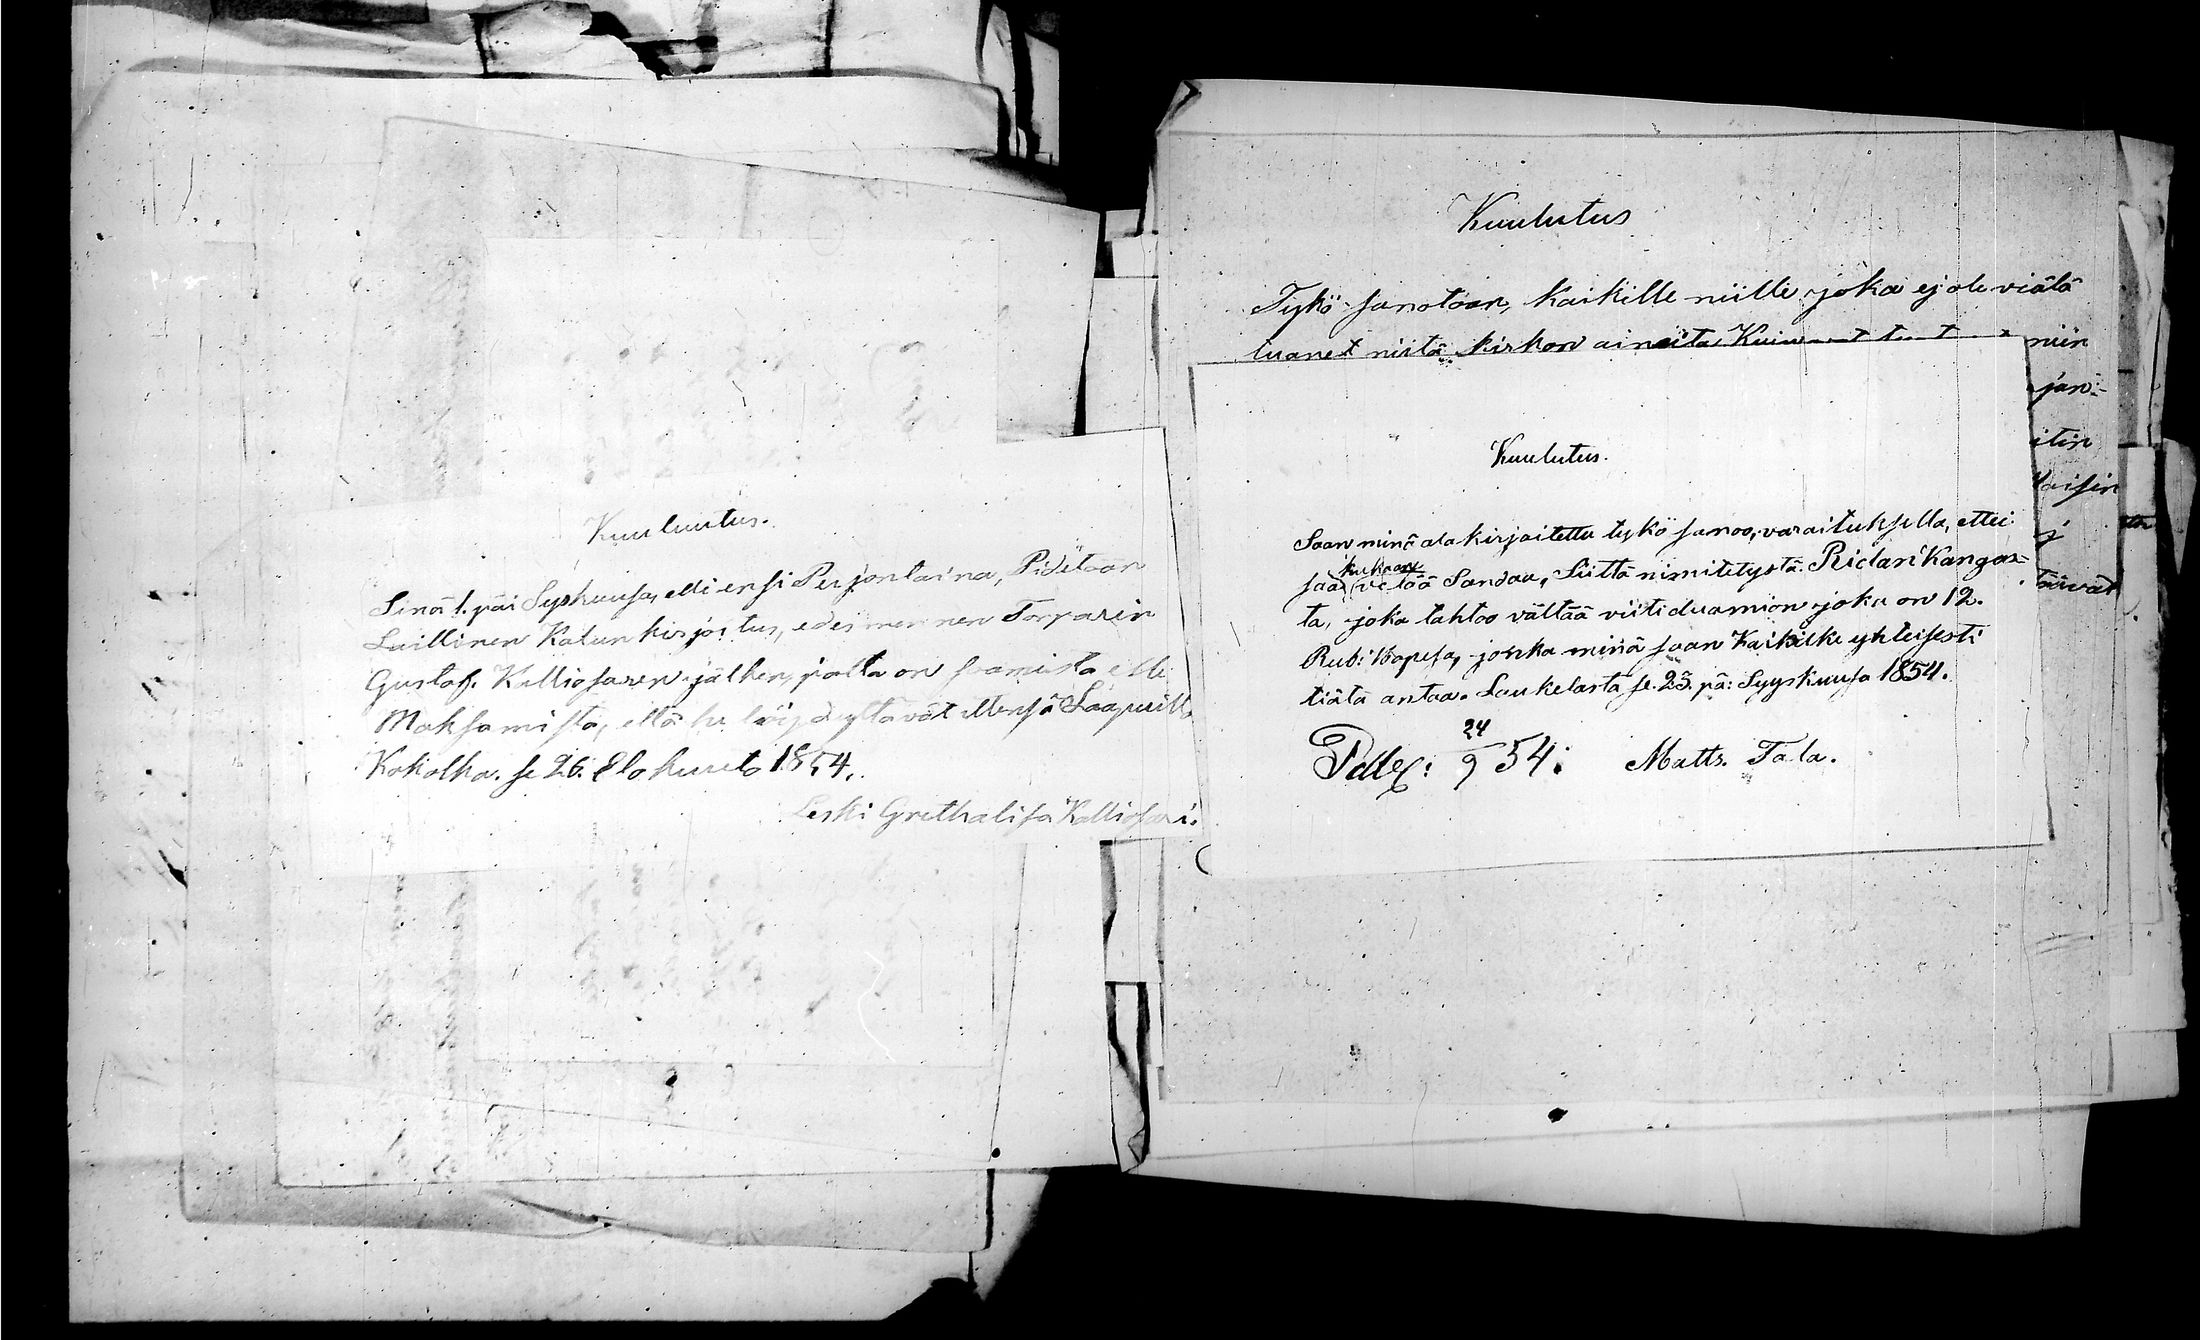 Kuuluutus.
Sinä 1. päi Syskuusa, elli ensi Perjontaina, Pidetään
Laillinen Kalunkirjoitus, edesmennen Torparin
Gustaf. Kalliosaren jälken, joilla on saamista elli
Maksamista, että he löisi yttävät ittensä Laapuilla
Kokolka. se 26. Elokuuto 1854.
Leski Grethalisa Kalliosari.
Kuulutus
Tykö-sanotaan, Kaikille niille joka ej ole vielä
tuanet niitä kirkon aineita
niin
jan:
itin
taisin
j
täävät
Kuulutus.
Saan minä ala kirjaitettu tykö sanoo, varaituksella, ettei
saa kukaan vetää Sandaa, Siittä nimitetystä Ridari Kangas-
ta, joka tahtoo välttää viiti duamion joka on 12.
Rub: Hopesa, jonka minä saan Kaikilke yhteisesti
tiätä antaa. Laukelasta se. 23. pä: Syyskuusa 1854.
Pdlex: 24/9 54: Matts. Tala.